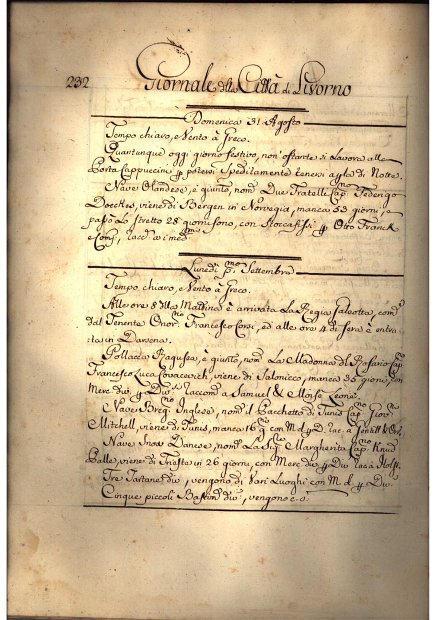 232 Giornale della Città di Livorno
Domenica 31. Agosto
Tempo chiaro, e Vento à Greco.
Quantunque oggi giorno festivo, non' ostante si Lavora alle
Porta Cappuccini p potersi speditamente tenersi aple di Notte.
Nave Olandese, è giunto, nom.ta Due Fratelli, Cap.no Federigo
Doeckes, viene di Bergen in Norvegia, manca 53 giorni, e
passò Lo Stretto 28 giorni sono, con Stoccafissi p Otto Franck
e Comp., racc.a a i med.mi
Lunedì p.mo Settembre
Tempo chiaro, e Vento à Greco.
Alle ore 8 della Mattina è arrivata La Regia Galeotta, com.ta
dal Tenente Onor.rio Francesco Corsi, ed alle ore 4 di sera è entra
ta in Darsena.
Pollacca Ragusea, è giunto, nom.ta La Madonna del Rosario Cap.
Francesco Luca Covacevich, viene di Salonicco, manca 30 giorni, con
Merc. div. p Div.si raccom. a Samuel & Moise Leone.
Nave Brig. Inglese, nom.ta il Pacchetto di Tunis Cap.no
Mitchell, viene di Tunis, manca 16 g.ni con M. d. p D. rac. a
Nave Snow Danese, nom.ta La Sig.ra Margherita Cap.no Knud
Balle, viene di Trieste in 26 giorni, con Merc. div. p Div. rac. a
Tre Tartane div., vengono di Vari Luoghi con M. d. p Div.
Cinque piccoli Bastim. div., vengono c. s.